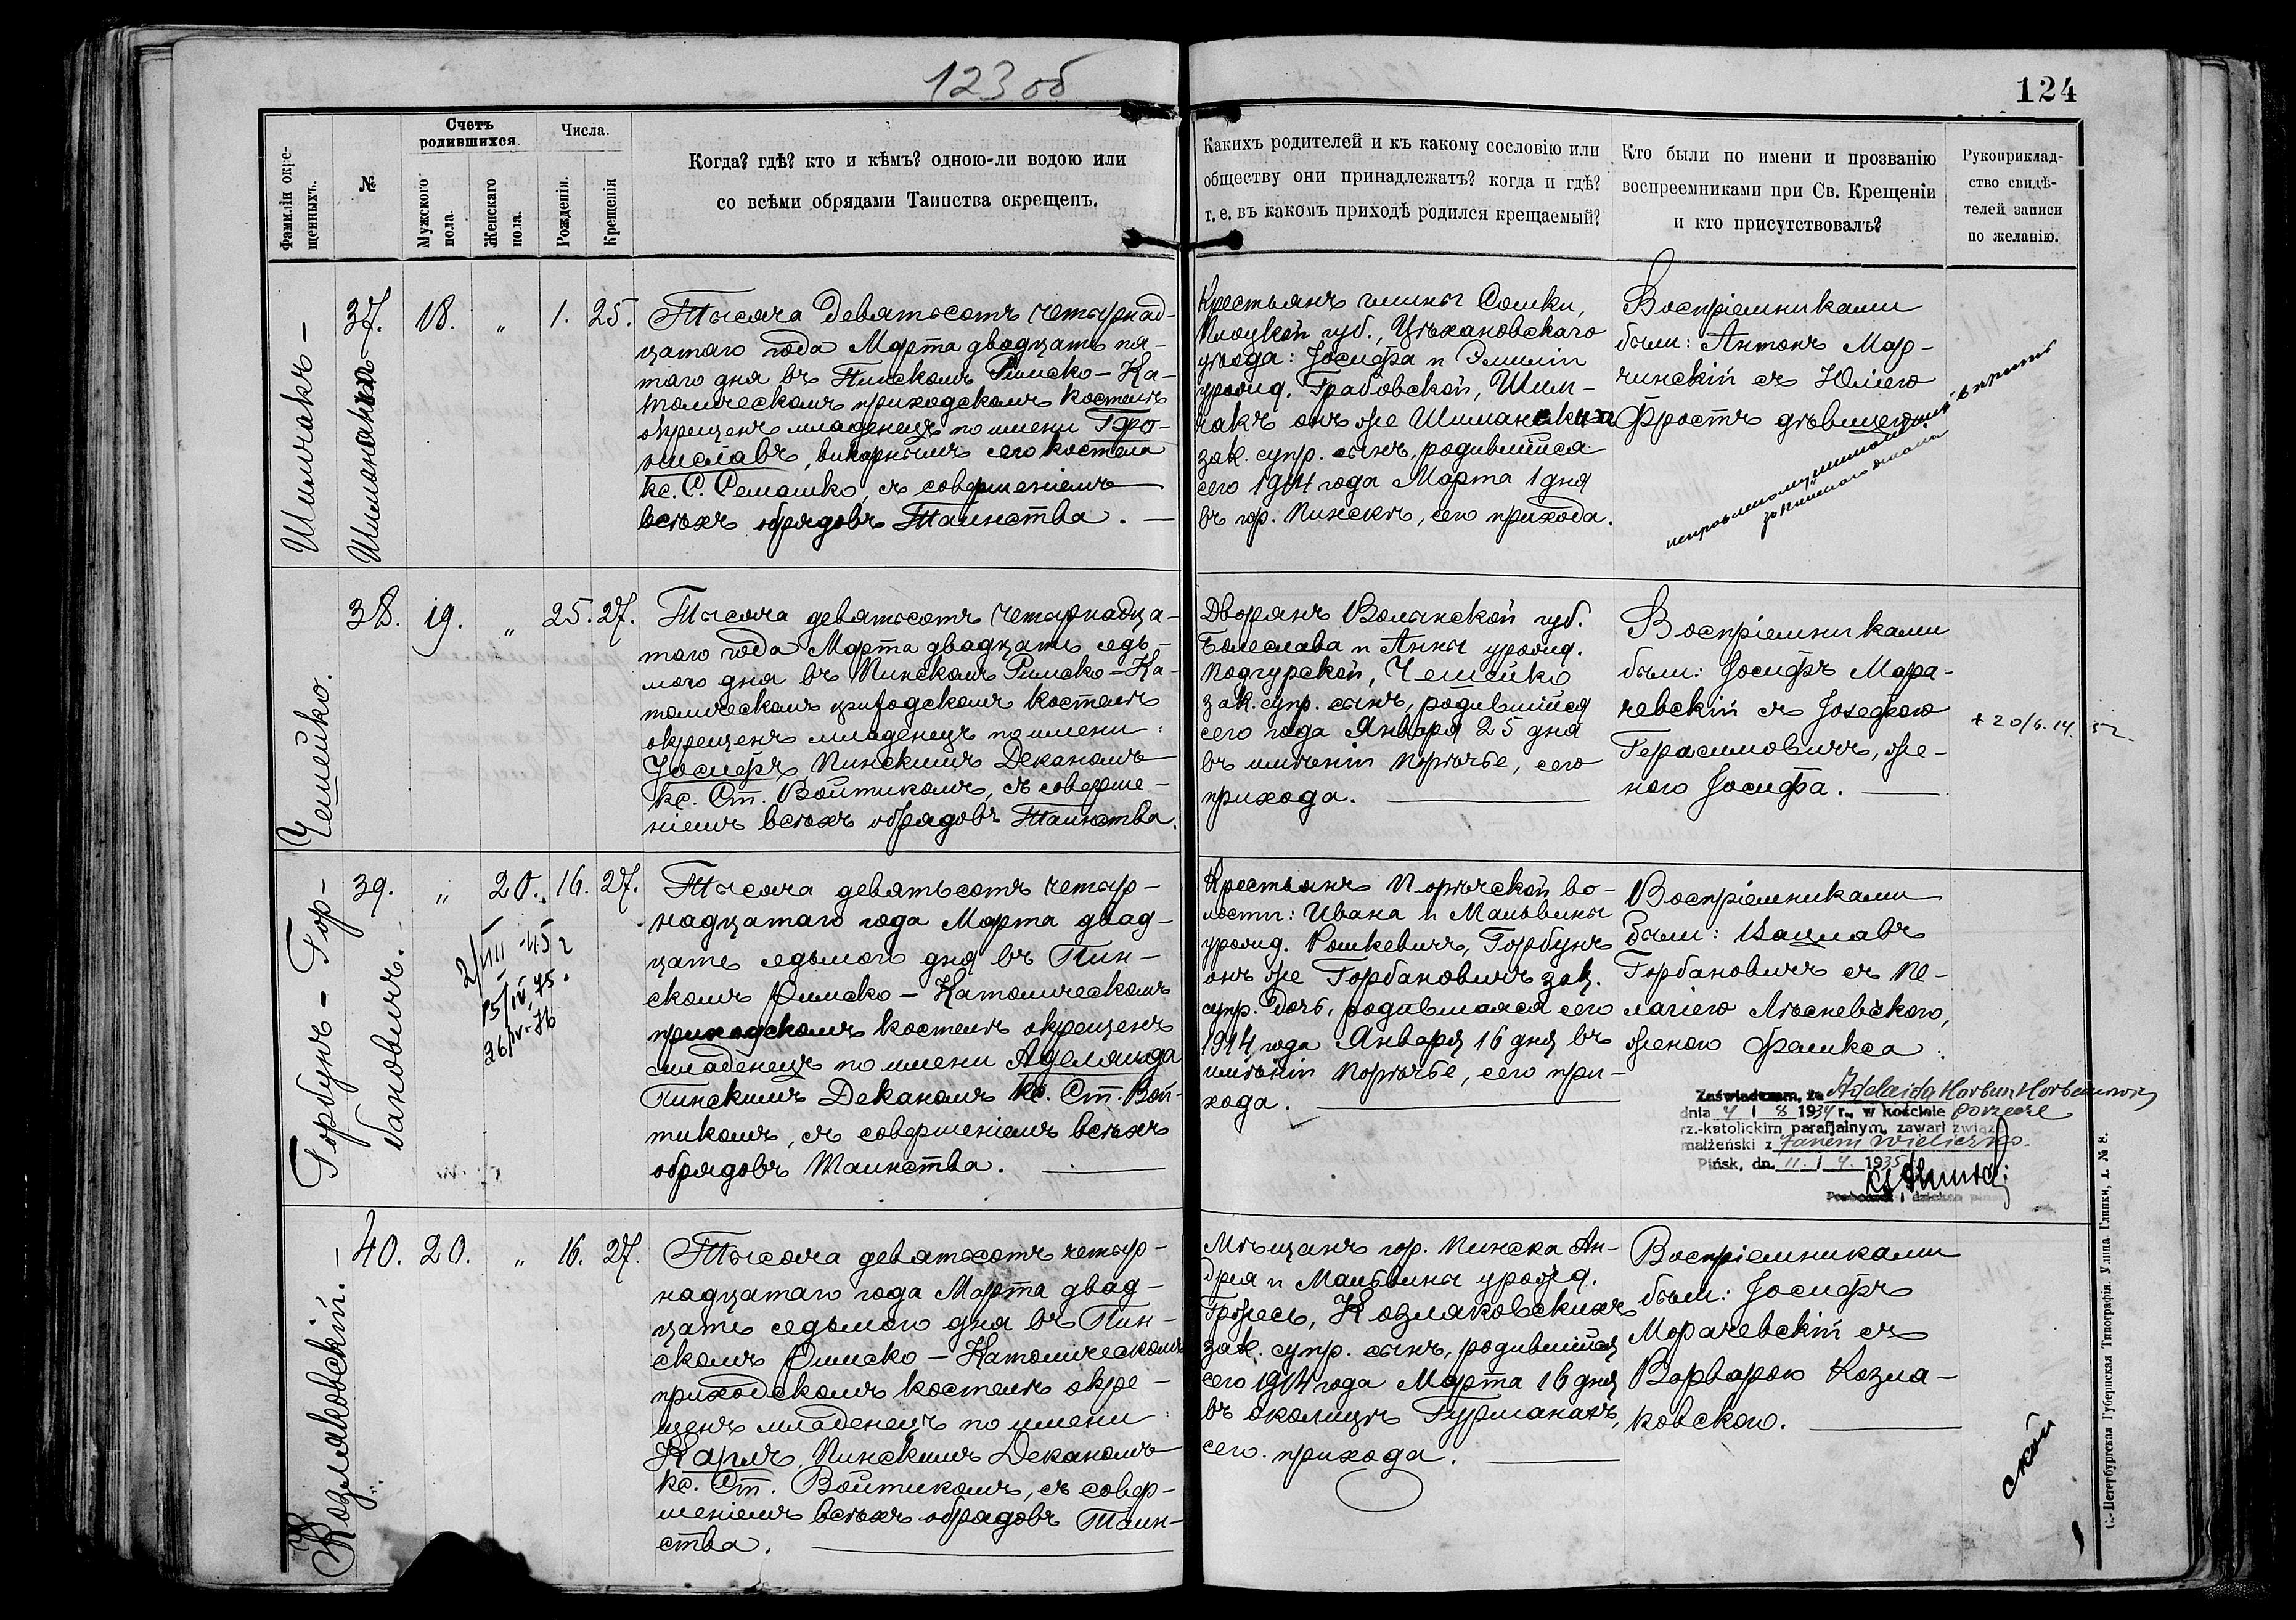 123 об
124
Фамиліи окре-
щенныхъ.
№
Счетъ
родившихся.
Мужскаго
пола.
Женскаго
пола.
Числа.
Рожденія.
Крещенія
Когда? гдѣ? кто и кѣмъ? одною-ли водою или
со всѣми обрядами Таинства окрещенъ.
Какихъ родителей и къ какому сословію или
обществу они принадлежатъ? когда и гдѣ?
т. е. въ какомъ приходѣ родился крещаемый?
Кто были по имени и прозванію
воспреемниками при Св. Крещеніи
и кто присутствовалъ?
Рукоприклад-
ство свидѣ-
телей записи
по желанію.
Шимчакъ –
Шиманскій
37.
18.
„
1.
25.
Тысяча девятьсотъ четырнад-
цатаго года Марта двадцать пя-
таго дня въ Пинскомъ Римско-Ка-
толическомъ приходскомъ костелѣ
окрещенъ младенецъ по имени Бро-
ниславъ, викарнымъ сего костела
кс. С. Семашко, съ совершеніемъ
всѣхъ обрядовъ Таинства. —
Крестьянъ гмины Сонки,
Плоцкой губ., Цѣхановскаго
уѣзда: Іосифа и Эмиліи
урожд. Грабовской, Шим-
чакъ онъ же Шиманскихъ
зак. супр. сынъ, родившійся
сего 1914 года Марта 1 дня
въ гор. Пинскѣ, сего прихода.
Воспріемниками
были: Антонъ Мар-
чинскій съ Юліею
Фростъ дѣвицею
38.
19.
„
25.
27.
Чешейко.
Тысяча девятьсотъ четырнадца-
таго года Марта двадцать седь-
мого дня въ Пинскомъ Римско-Ка-
толическомъ приходскомъ костелѣ
окрещенъ младенецъ по имени
Іосифъ, Пинскимъ Деканомъ
кс. Ст. Войтикомъ, съ соверше-
ніемъ всѣхъ обрядовъ Таинства.
Дворянъ Волынской губ.
Болеслава и Анны урожд.
Подгурской, Чешейко
зак. супр. сынъ, родившійся
сего года Января 25 дня
въ имѣніи Порѣчье, сего
прихода.
Воспріемниками
были: Іосифъ Мара-
чевскій съ Іозефою
Герасимовичъ, же-
ною Іосифа.
+ 20/6. 14.
Горбунъ – Гор-
бановичъ. –
39.
„
20.
16.
27.
2/VIII - 45 г
15/IV, 75.
26/IV-76
Тысяча девятьсотъ четыр-
надцатаго года Марта двад-
цать седьмого дня въ Пин-
скомъ Римско – Католическомъ
приходскомъ костелѣ окрещенъ
младенецъ по имени Аделяида
Пинскимъ Деканомъ Кс. Ст. Вой-
тикомъ, съ совершеніемъ всѣхъ
обрядовъ Таинства.
Крестьянъ Порѣчской во-
лости: Ивана и Мальвины
урожд. Рошкевичъ, Горбунъ
онъ же Горбановичъ зак.
супр. дочь, родившаяся сего
1914 года Января 16 дня въ
имѣніи Порѣчье, сего при-
хода.
Воспріемниками
были: Вацлавъ
Горбановичъ съ Пе-
лагіею Лѣсневскою,
женою Феликса.
Zaświadczam, że Adelaida Horbun Horbanowicz
dnia 4 / 8 1934 r., w kościele porzecze
rz.-katolickim parafjalnym, zawarł związ
małżeński z Janem Wieliczko.
Pińsk, dn. 11 / 4 1935
Козляковскій. –
40.
20.
„
16.
27.
Тысяча девятьсотъ четыр-
надцатаго года Марта двад-
цать седьмого дня въ Пин-
скомъ Римско – Католическомъ
приходскомъ костелѣ окре-
щенъ младенецъ по имени
Карлъ, Пинскимъ Деканомъ
кс. Ст. Войтикомъ, съ совер-
шеніемъ всѣхъ обрядовъ Таин-
ства.
Мѣщанъ гор. Пинска Ан-
дрея и Мальвины урожд.
Грожесь, Козляковскихъ
зак. супр. сынъ, родившійся
сего 1914 года Марта 16 дня
въ околицѣ Гурманахъ,
сего прихода.
Воспріемниками
были: Іосифъ
Морачевскій съ
Варварою Козля-
ковскою.
ской
С.-Петербургская Губернская Типографія. Улица Глинки, д. № 8.